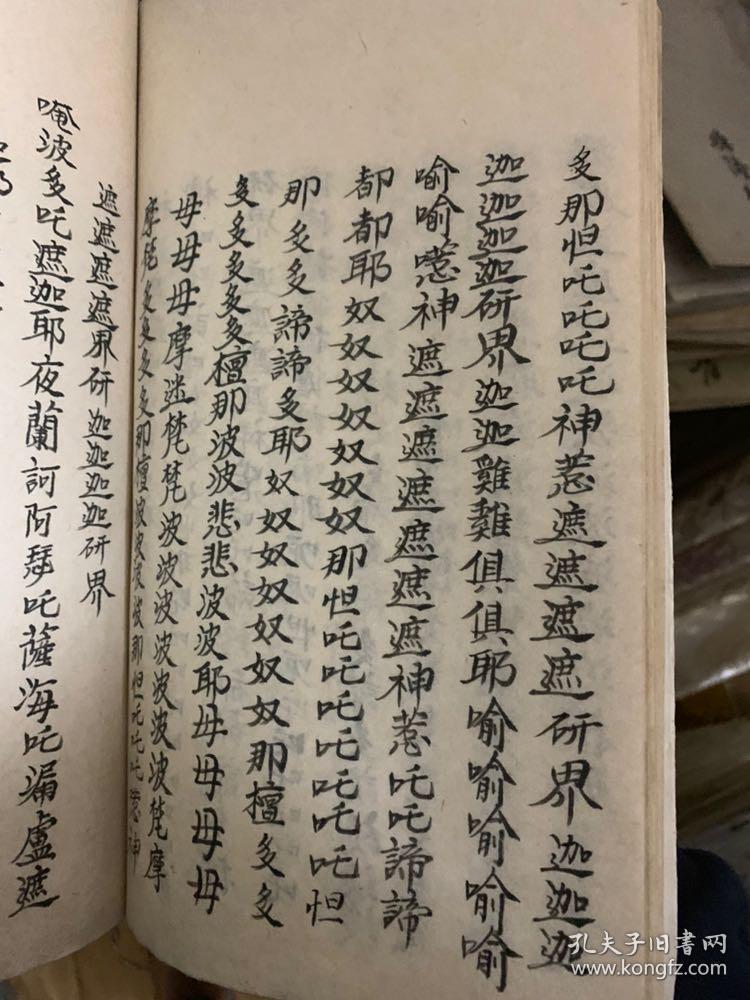 多那怛吒吒吒吒神惹遮遮遮遮研界迦迦迦
迦迦迦迦研界迦迦雞雞俱俱耶喻喻喻喻喻喻
喻喻惹神遮遮遮遮遮遮遮神惹吒吒諦諦
都都耶奴奴奴奴奴奴奴那怛吒吒吒吒吒吒吒怛
那多多諦諦多耶奴奴奴奴奴奴奴那檀多多
多多多多多多檀那波波悲悲波波耶母母母母
母母母摩迷梵梵波波波波波波波梵摩
摩梵多多多多多那檀波波波波那怛吒吒吒惹神
遮遮遮遮界研迦迦迦迦研界
唵波多吒遮迦耶夜蘭訶阿瑟吒薩海吒漏盧遮
孔夫子旧書网
www.kongfz.com